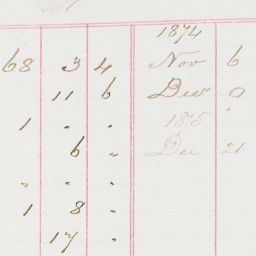 1874
68 3 4 Nov 6
11 6 Dec 9
1 " " 1875 "
6 " Dec 21
" " "
1 8 "
17 "